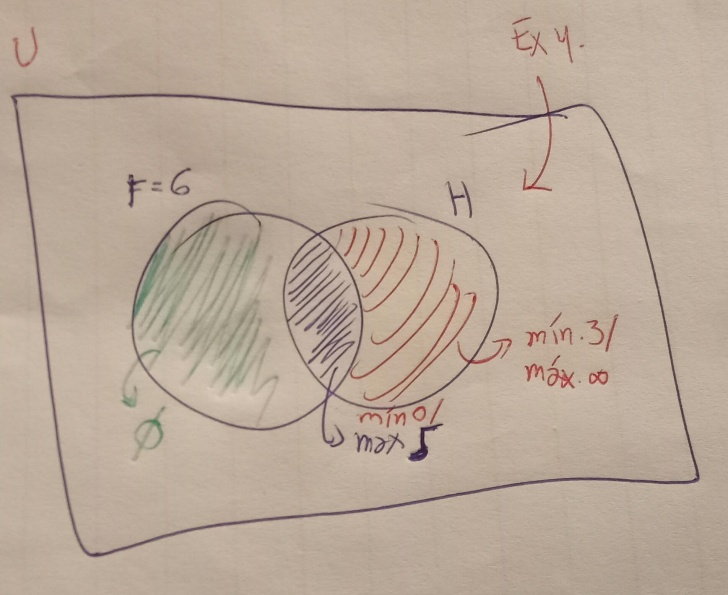 U
Ex 4.
F = 6
H
mín. 3/
máx. ∞
mín 0/
max 5
φ